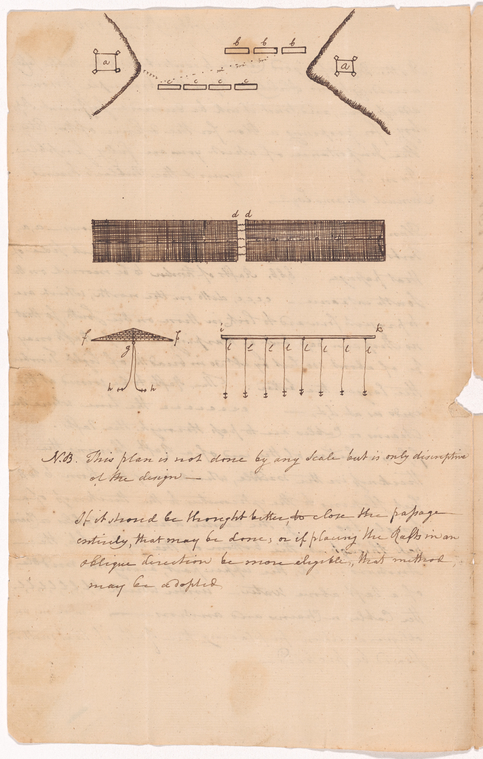 b b b
a a
c c c c
d d
f f
g
h h
i k
l l l l l l l l
N.B. This plan is not done by any scale but is only discriptive
of the design—
If it should be thought better, to close the passage
entirely, that may be done; or if placing the Rafts in an
oblique direction be more eligible, that method
may be adopted